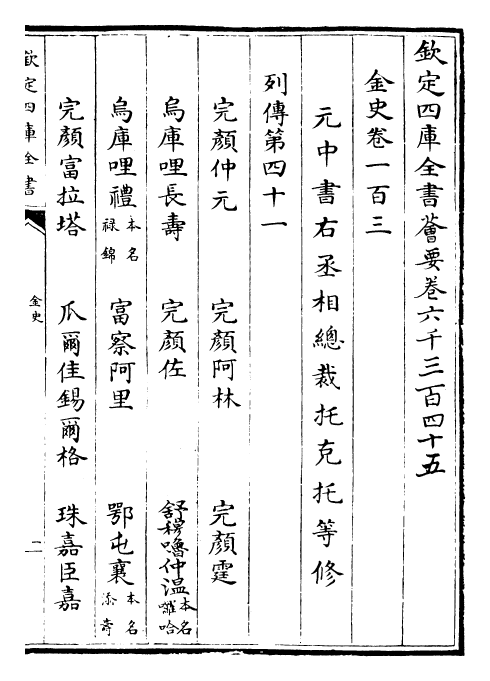 欽定四庫全書薈要卷六千三百四十五
金史卷一百三
元中書右丞相總裁托克托等修
列傳第四十一
完顏仲元 完顏阿林 完顏霆
烏庫哩長壽 完顏佐 舒穆嚕仲温 本名哈
烏庫哩禮 本名祿錦 富察阿里 鄂屯襄 本名添壽
完顏富拉塔 瓜爾佳錫爾格 珠嘉臣嘉
欽定四庫全書 金史